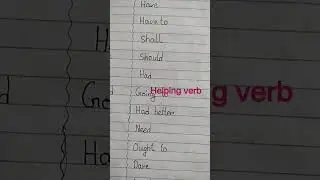 Have
Have to
Shall
Should
Had
Going to
Helping verb
Had better
Need
Ought to
Dare